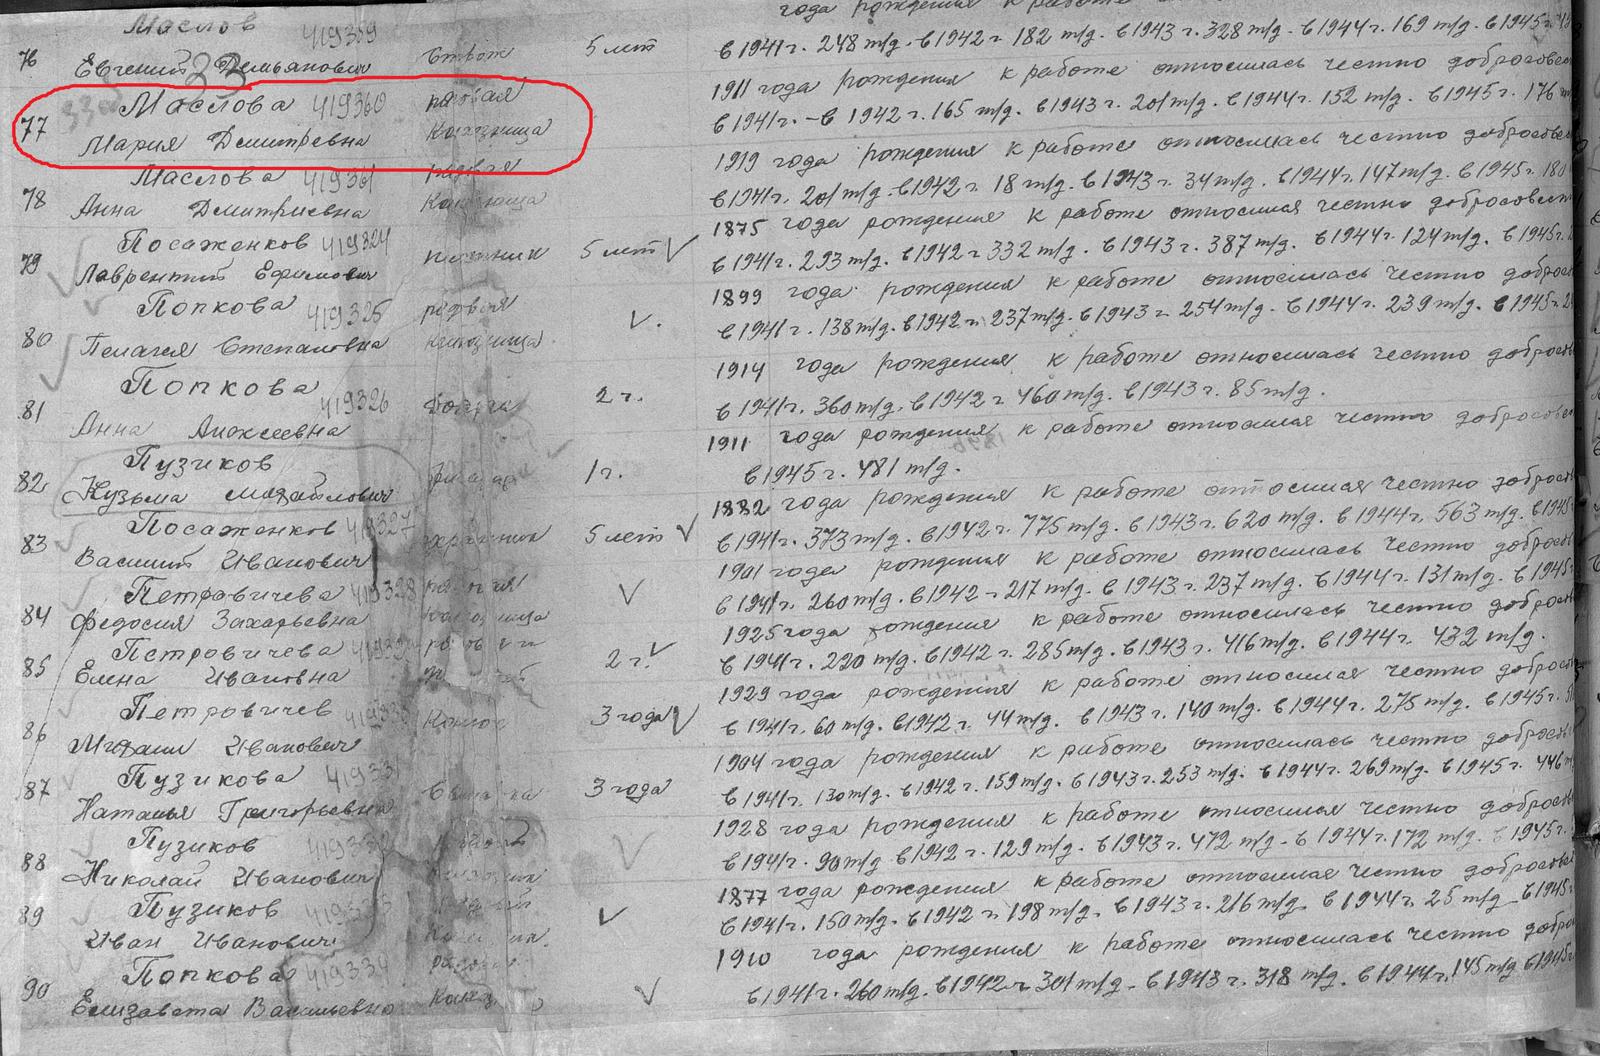 года рождения к работе
Маслов 419359
76 Евгений Демьянович 5 лет в 1941 г. 248 т/д. в 1942 г 182 т/д. в 1943 г. 328 т/д. в 1944 г. 169 т/д. в 1945 г.
33
77 Маслова 419360 рядовая 1911 года рождения к работе относилась честно добросовес
Мария Дмитревна Колхозница в 1941 г. – в 1942 г. 165 т/д. в 1943 г. 201 т/д. в 1944 г. 152 т/д. в 1945 г. 176 т/
Маслова 419361 рядовая 1919 года рождения к работе относилась честно добросовес
78 Анна Дмитриевна Колхозница в 1941 г. 201 т/д. в 1942 г 18 т/д. в 1943 г. 34 т/д. в 1944 г. 147 т/д. в 1945 г. 180
Посаженков 419324 1875 года рождения к работе относился честно добросовест
79 Лаврентий Ефимович 5 лет в 1941 г. 293 т/д. в 1942 г 332 т/д. в 1943 г. 387 т/д. в 1944 г. 124 т/д. в 1945 г.
Попкова 419325 рядовая 1899 года рождения к работе относилась честно доброс
80 Пелагея Степановна колхозница в 1941 г. 138 т/д. в 1942 г. 237 т/д. в 1943 г 254 т/д. в 1944 г. 239 т/д. в 1945 г.
Попкова 419326 2 г. 1914 года рождения к работе относилась честно добросов
81 Анна Алексеевна в 1941 г. 360 т/д. в 1942 г 460 т/д. в 1943 г. 85 т/д.
Пузиков 1911 года рождения к работе относился честно добросовес
82 Кузьма Михайлович 1 г. в 1945 г. 481 т/д.
Посаженков 419327 1882 года рождения к работе относился честно доброс
83 Василий Иванович 5 лет в 1941 г. 373 т/д. в 1942 г. 775 т/д. в 1943 г. 620 т/д. в 1944 г. 563 т/д. в 1945
Петравичева 419328 рядовая 1901 года рождения к работе относилась честно доброс
84 Федосия Захарьевна колхозница в 1941 г. 260 т/д. в 1942 г 217 т/д. в 1943 г. 237 т/д. в 1944 г. 131 т/д. в 1945
Петровичева 1925 года рождения к работе относилась честно доброс
85 Елена Ивановна 2 г. в 1941 г. 220 т/д. в 1942 г. 285 т/д. в 1943 г. 416 т/д. в 1944 г. 432 т/д.
Петровичев 1929 года рождения к работе относился честно доброс
86 Михаил Иванович 3 года в 1941 г. 60 т/д. в 1942 г. 44 т/д. в 1943 г. 140 т/д. в 1944 г. 275 т/д. в 1945 г.
Пузикова 1904 года рождения к работе относилась честно доброс
87 Наталья Григорьевна 3 года в 1941 г. 130 т/д. в 1942 г. 159 т/д. в 1943 г. 253 т/д. в 1944 г. 269 т/д. в 1945 г. 446
Пузиков 1928 года рождения к работе относился честно доброс
88 Николай Иванович в 1941 г. 90 т/д в 1942 г. 129 т/д. в 1943 г. 472 т/д. в 1944 г. 172 т/д. в 1945 г.
Пузиков 1877 года рождения к работе относился честно добросове
89 Иван Иванович в 1941 г. 150 т/д. в 1942 г. 198 т/д. в 1943 г. 216 т/д. в 1944 г. 25 т/д. в 1945
Попкова 419334 1910 года рождения к работе относилась честно добро
90 Елизавета Васильевна в 1941 г. 260 т/д. в 1942 г 301 т/д. в 1943 г. 318 т/д. в 1944 г. 145 т/д в 1945